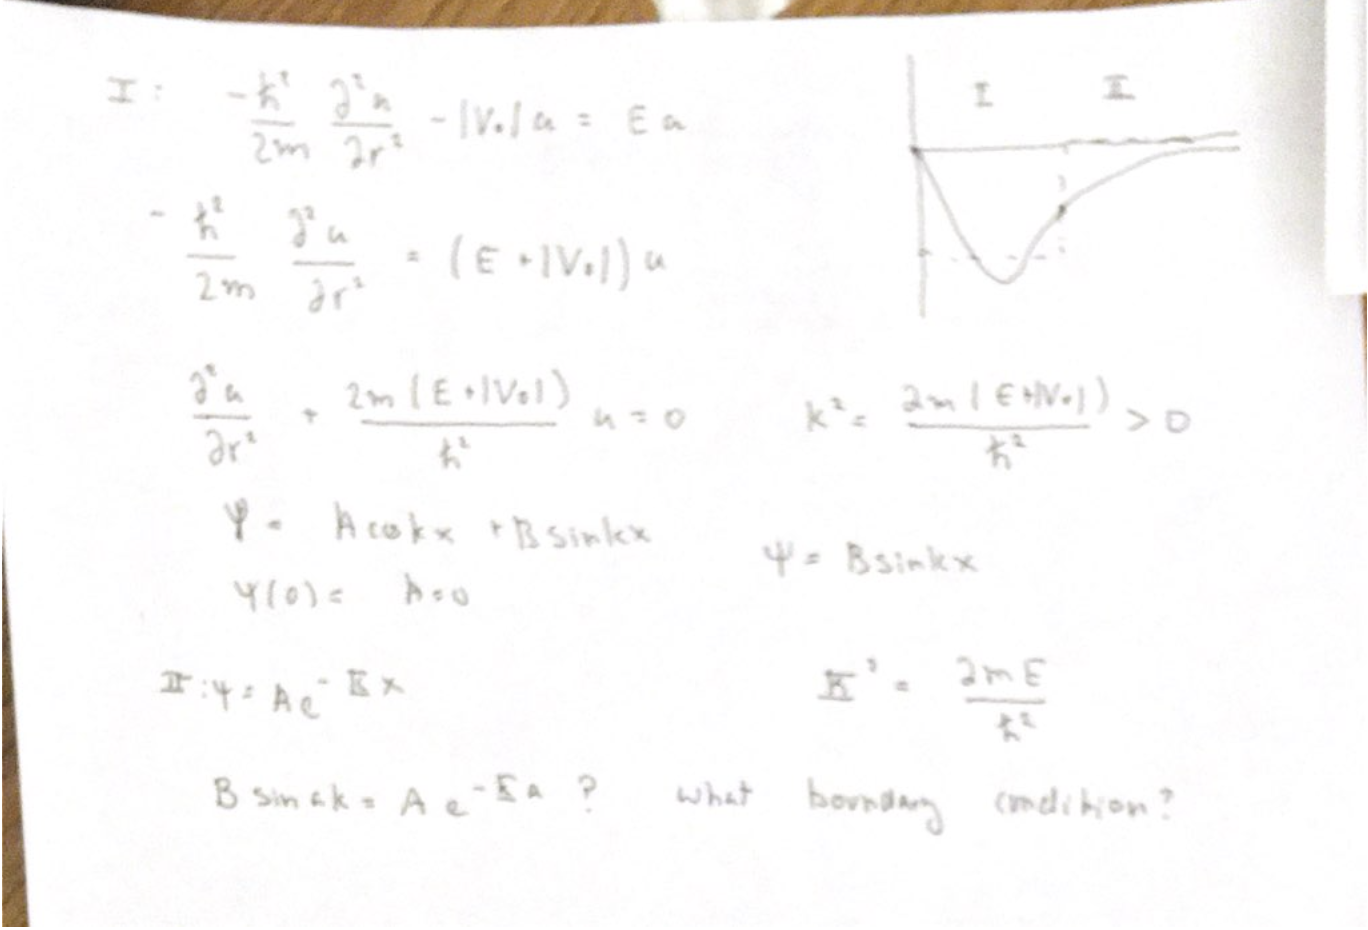 I : -ħ²/2m ∂²u/∂r² - |V₀| u = E u
I II
- ħ²/2m ∂²u/∂r² = (E + |V₀|) u
∂²u/∂r² + 2m(E+|V₀|)/ħ² u = 0 k² = 2m(E+|V₀|)/ħ² > 0
Ψ = A cos kx + B sin kx
Ψ = B sin kx
Ψ(0) = A = 0
II : Ψ = A e^(-K x) K² = 2mE/ħ²
B sin ak = A e^(-K a) ? what boundary condition?